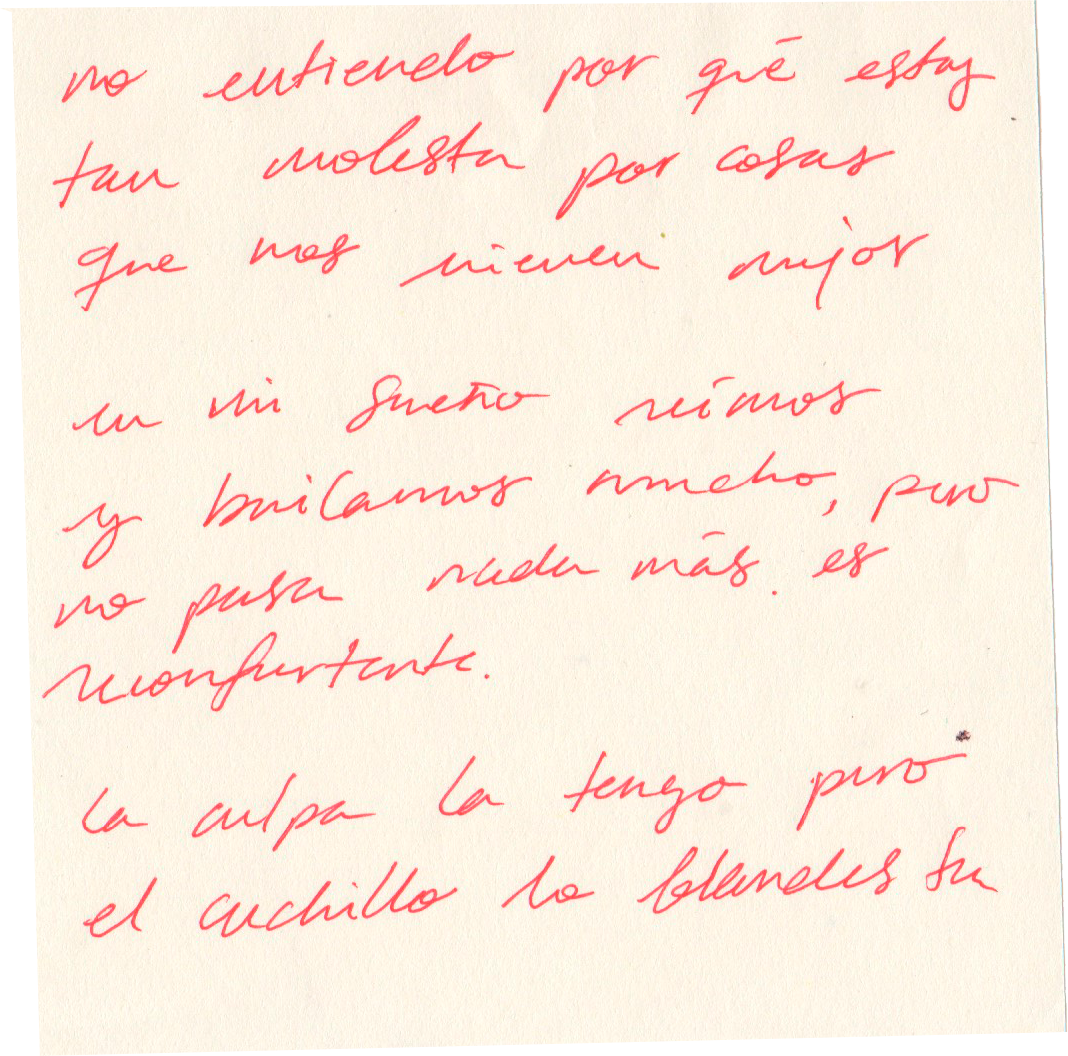 no entiendo por qué estoy
tan molesta por cosas
que nos vienen mejor
en mi sueño reímos
y bailamos mucho, pero
no pasa nada más. es
reconfortante.
la culpa la tengo pero
el cuchillo lo blandes tu